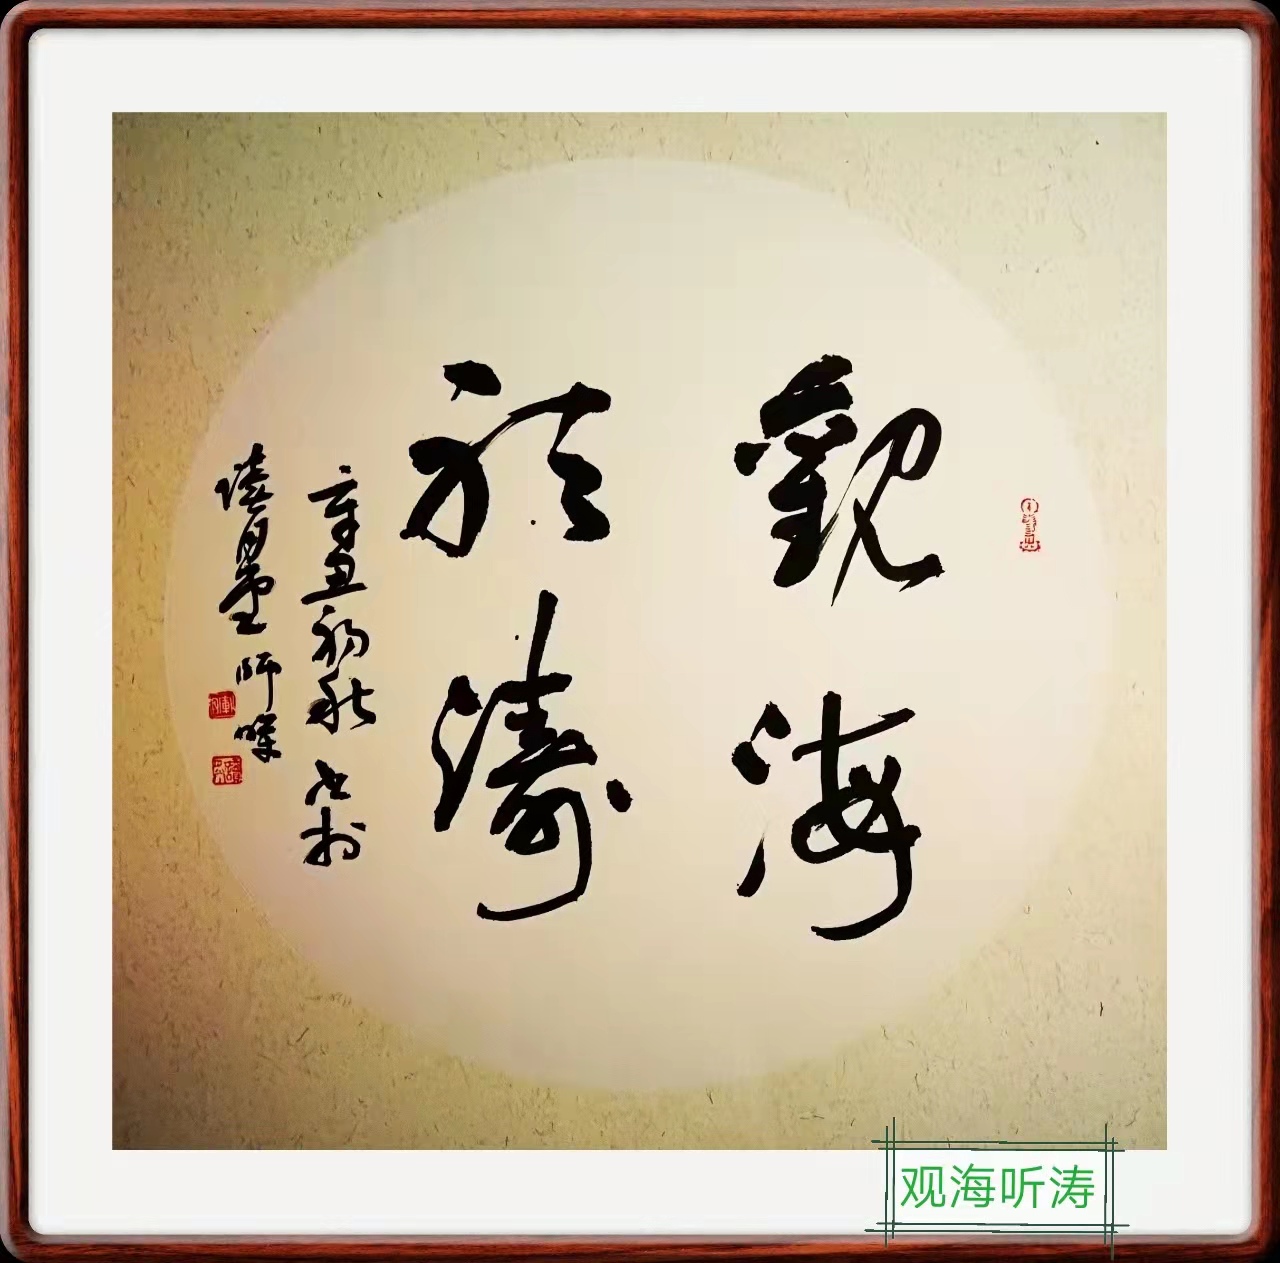 觀海
聽濤
辛丑初秋
观海听涛